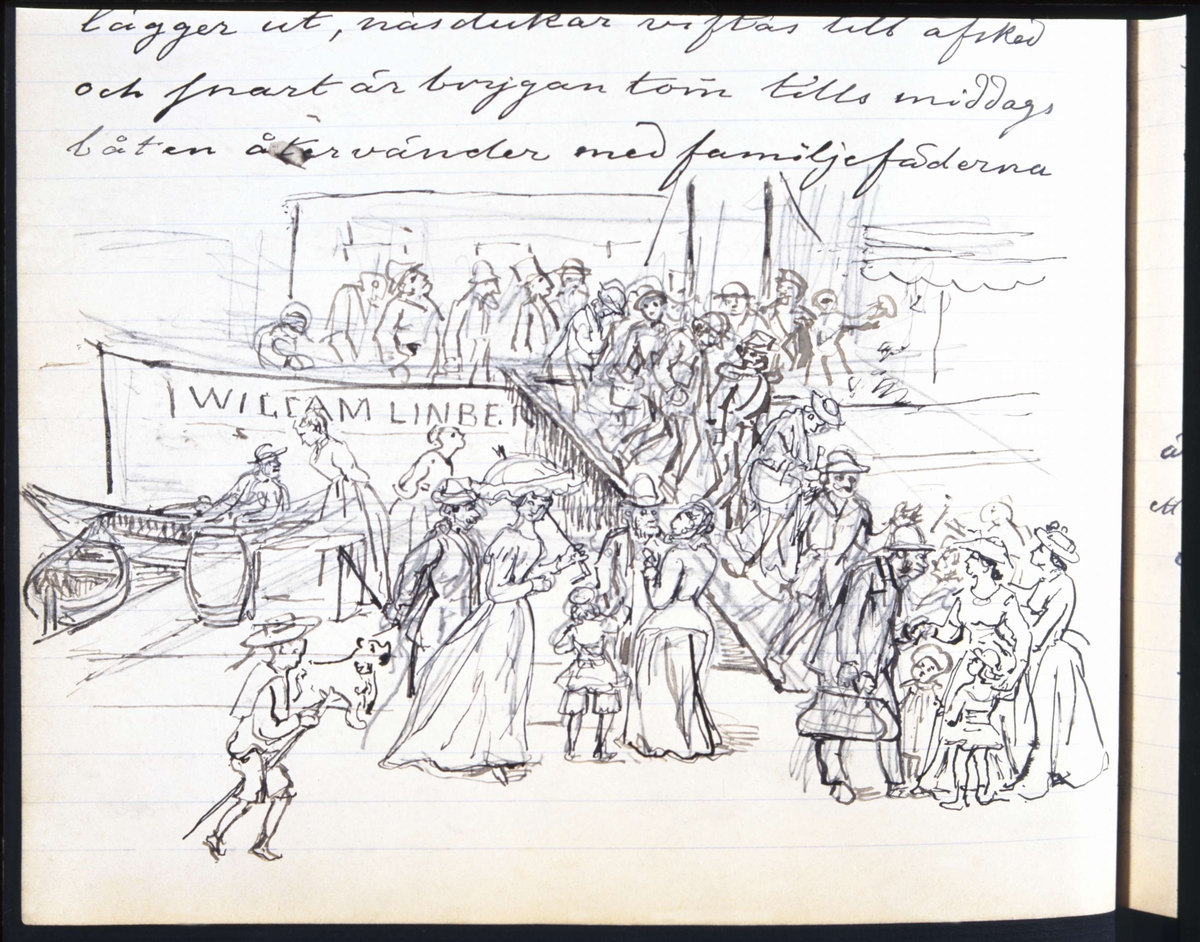 lägger ut, näsdukar viftas till afsked
och snart är bryggan tom tills middags
båten återvänder med familjefäderna
WILLIAM LINBE
ä
ett